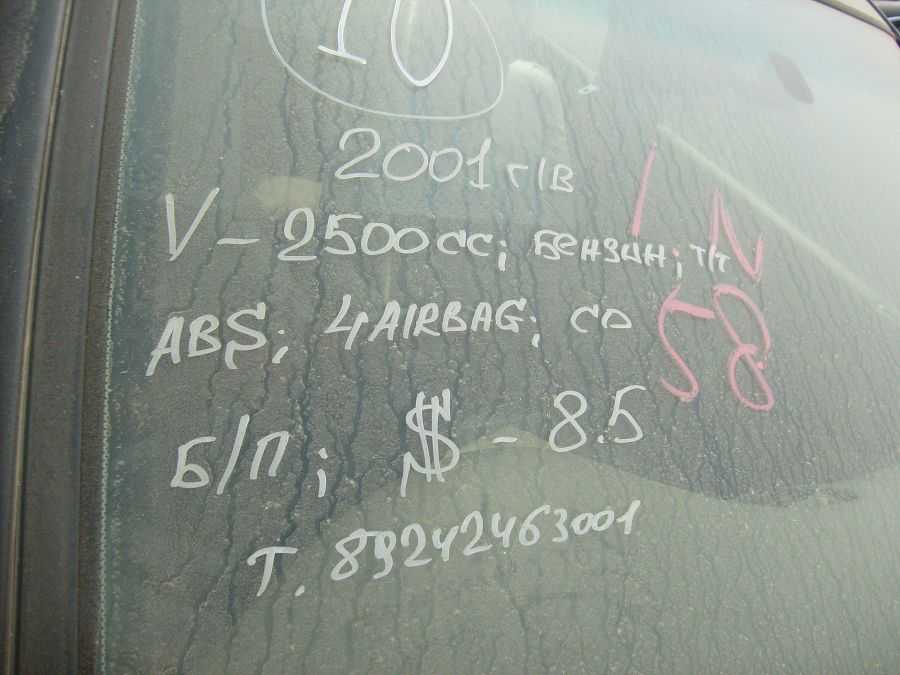 10
2001 г/в
V - 2500 cc; бензин; т/т
ABS; 4 AIRBAG; CD
Б/П; $ - 8.5
Т. 89242463001
58